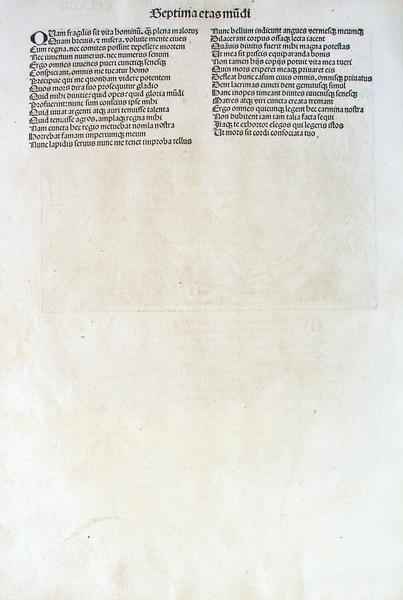 Septima etas mūdi
QUam fragilis sit vita hominū. q̄ȝ plena malorus
Quam brevis. ⁊ misera. volvite mente cives
Cum regna. nec comites possint repellere mortem
Nec iuvenum numerus. nec numerus senum
Ergo omnes iuvenes pueri cunctiqȝ senesqȝ
Conspiciant. omnis me tueatur homo
Precipue qui me quondam videre potentem
Quos mors dira suo prosequitur gladio
Quid mihi divitie: quid opes: quid gloria mūdi
Profuerint: nunc sum conscius ipse mihi
Quid iuvat argenti atqȝ auri tenuisse talenta
Quid tenuisse agros. amplaqȝ regna mihi
Nam cuncta hec regio metuebat nomīa nostra
Horrebat famam imperiumqȝ meum
Nunc lapidis servus nunc me tenet improba tellus
Nunc bellum indicunt angues vermesqȝ meumqȝ
Dilacerant corpus ossaqȝ lecta iacent
Quāvis divitis fuerit mihi magna potestas
Ut mea sit posceis equiparanda bonis
Non tamen his copijs potuit vita mea tueri
Quin mors eriperet meaqȝ privaret eis
Defleat hunc casum cuius omnis. omnisqȝ privatus
Dent lacrimas cuncti dent gemitusqȝ simul
Hanc inopes timeant divites iuvenisqȝ senesqȝ
Matres atqȝ viri cuncta creata tremant
Ergo omnes quicunqȝ legent hec carmina nostra
Non dubitent iam iam talia facta sequi
Itaqȝ te exhortor elegos qui legeris istos
Ut mors sit cordi consociata tuo